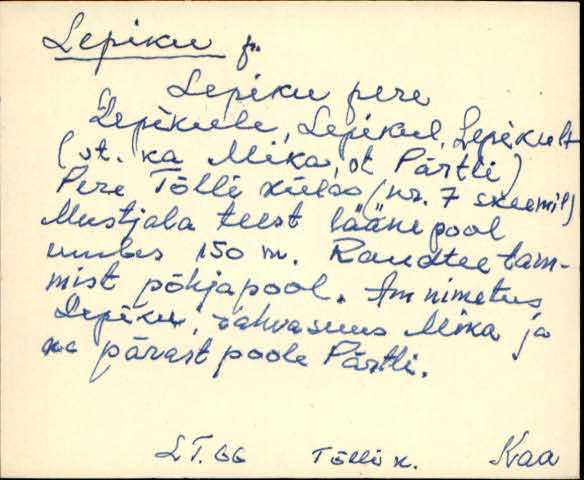 Lepiku p.
Lepiku pere
Lepikule, Lepikul, Lepikult
(vt. ka Mika, vt Pärtli)
Pere Tõlli külas (nr. 7 skeemil)
Mustjala teest lääne pool
umbes 150 m. Raudtee tam-
mist põhjapool. Am nimetus
Lepiku, rahvasuus Mika ja
ka pärast poole Pärtli.
LT. 66 Tõlli k. Kaa